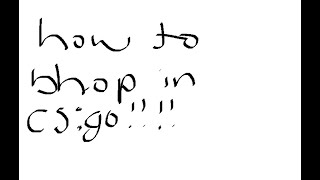 how to
bhop in
cs:go!!!!